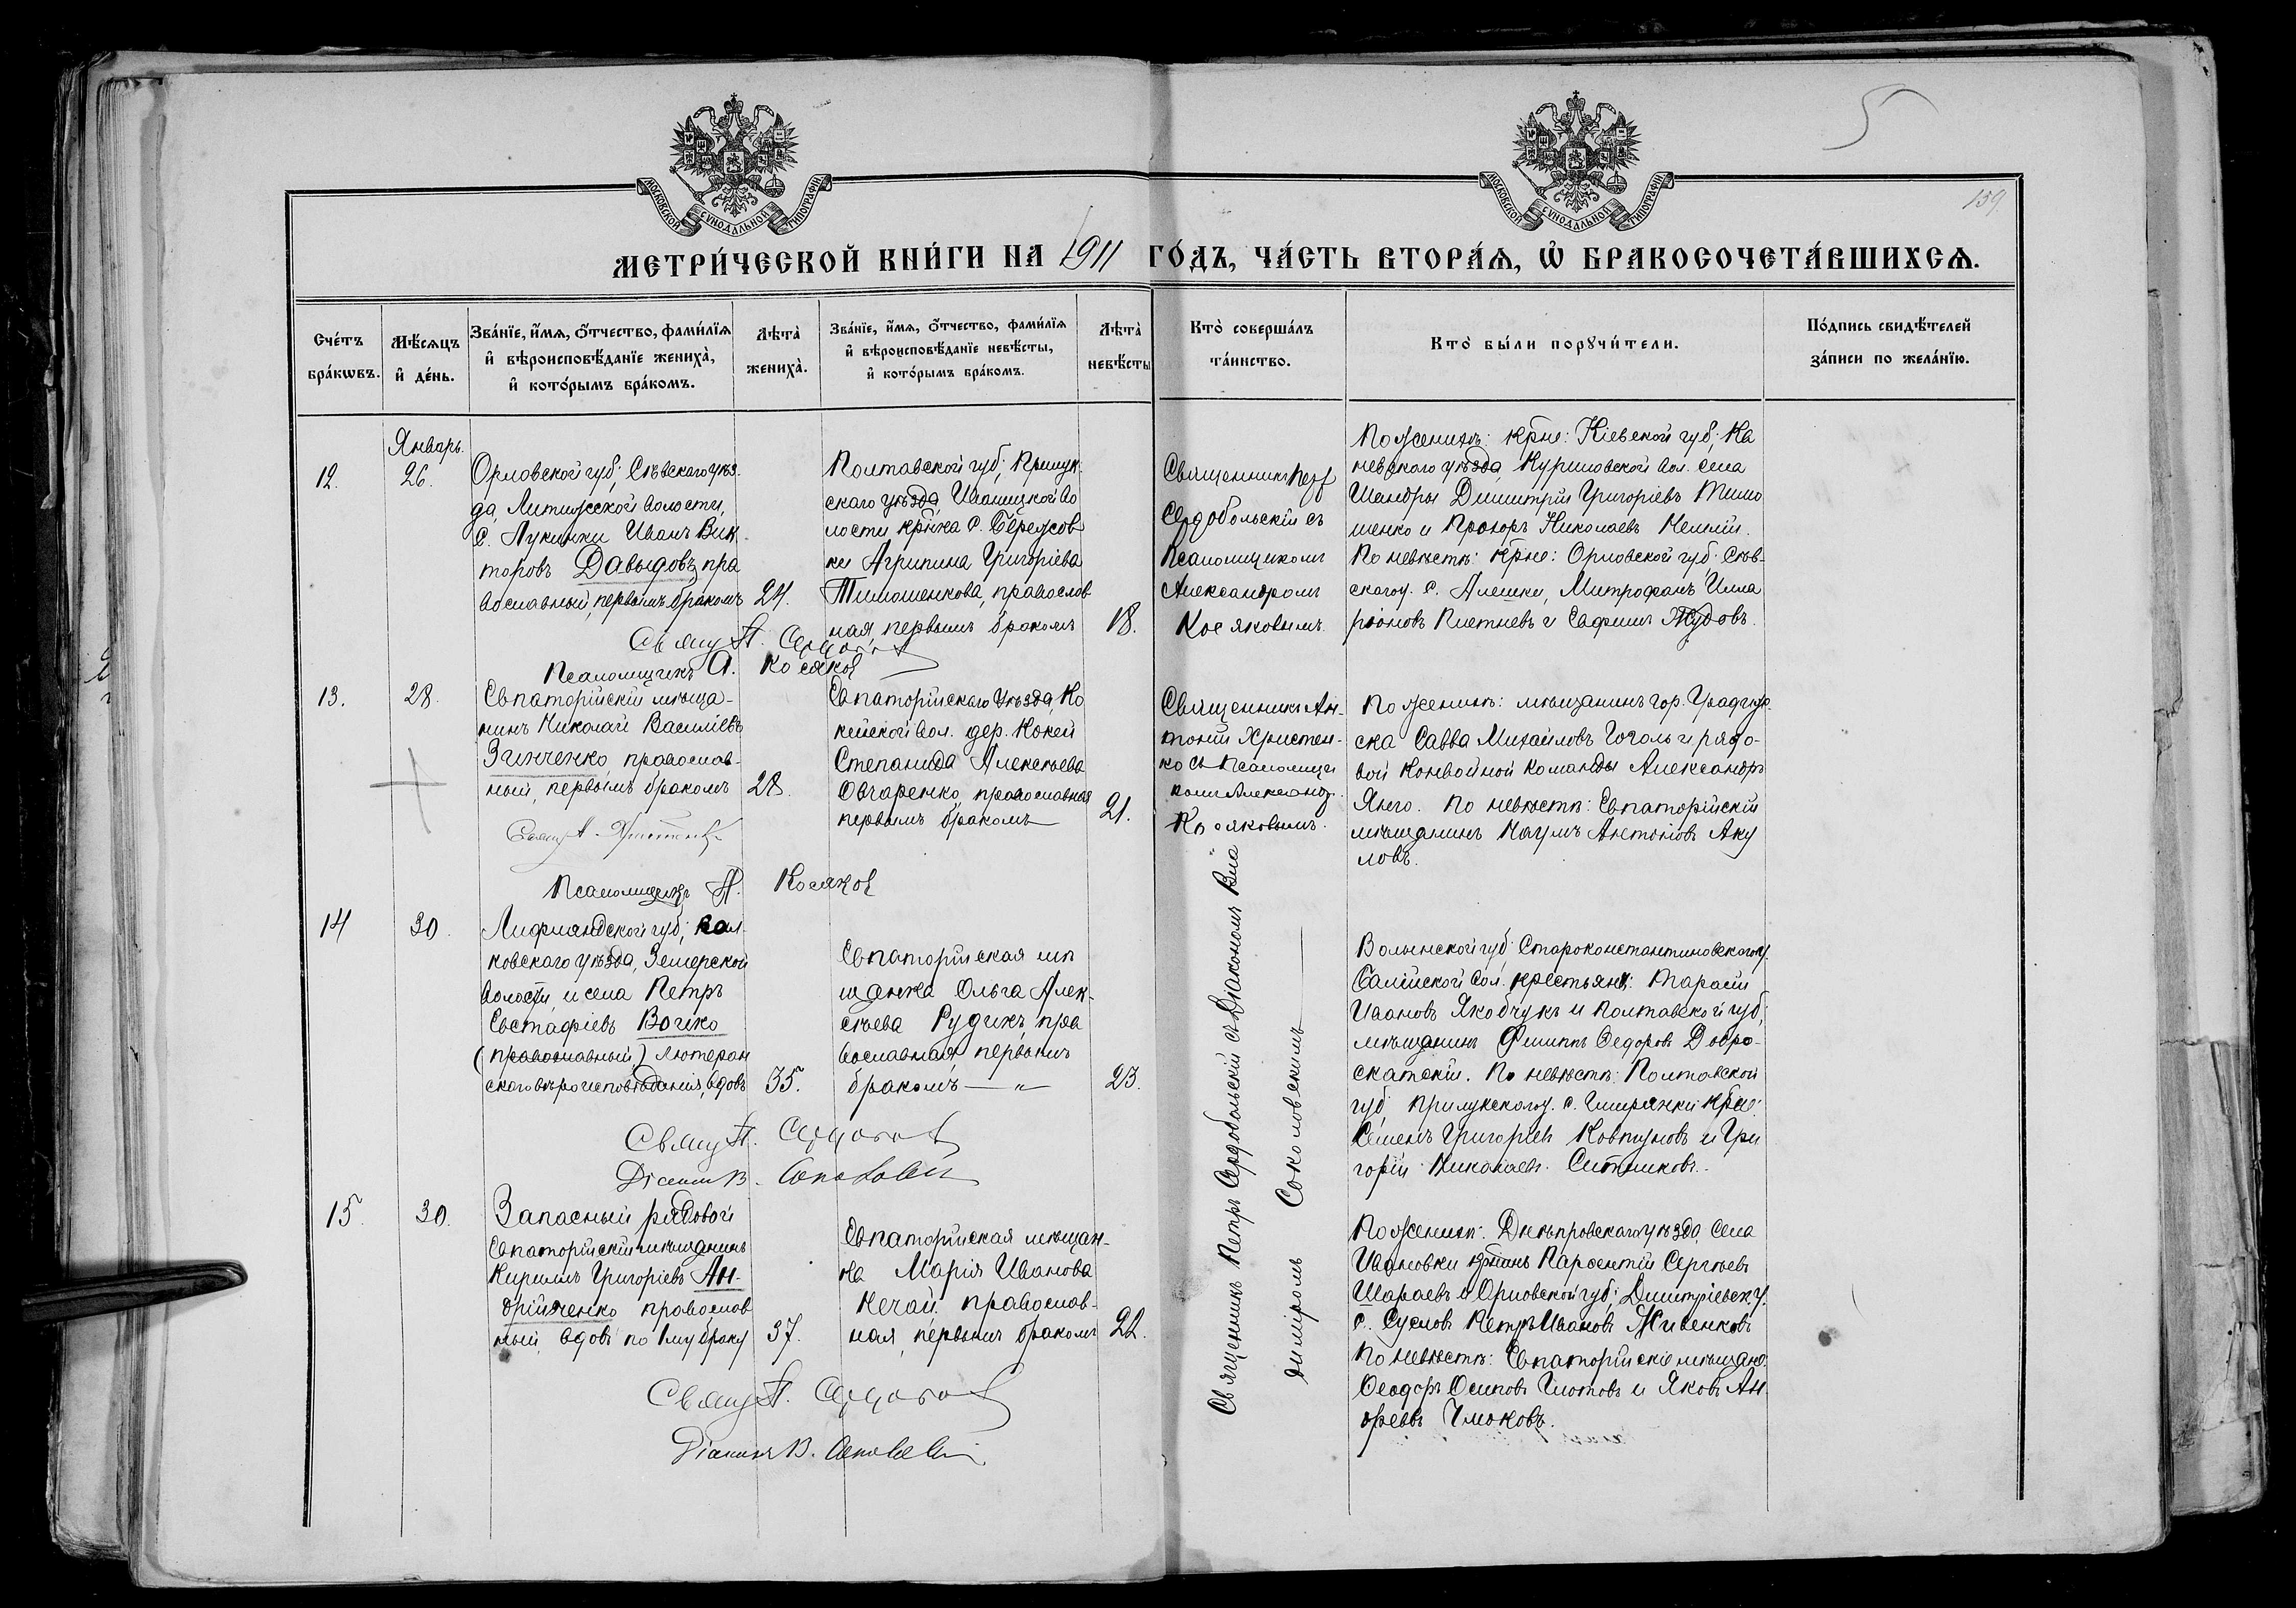 5
159.
МОСКОВСКОЙ СѴНОДАЛЬНОЙ ТИПОГРАФІИ
МОСКОВСКОЙ СѴНОДАЛЬНОЙ ТИПОГРАФІИ
МЕТРИ́ЧЕСКОЙ КНИ́ГИ НА 1911 ГО́ДЪ, ЧА́СТЬ ВТОРА́Ѧ, Ѡ҆ БРАКОСОЧЕТА́ВШИХСѦ.
Сче́тъ
бра́кѡвъ.
Мѣ́сѧцъ
и҆ де́нь.
Зва́нїе, и҆́мѧ, ѻ҆́тчество, фами́лїѧ
и҆ вѣроисповѣ́данїе жениха̀,
и҆ кото́рымъ бра́комъ.
Лѣта̀
жениха̀.
Зва́нїе, и҆́мѧ, ѻ҆́тчество, фами́лїѧ
и҆ вѣроисповѣ́данїе невѣ́сты,
и҆ кото́рымъ бра́комъ.
Лѣта̀
невѣ́сты
Кто̀ соверша́лъ
та́инство.
Кто̀ бы́ли порꙋчи́тели.
По́дпись свидѣ́телей
за́писи по жела́нїю.
12.
Январь.
26.
Орловской губ; Сѣвскаго уѣз
да, Литижской волости,
с. Лукинки Иванъ Вик
торовъ Давыдовъ, пра
вославный, первымъ бракомъ
24.
Полтавской губ; Прилук
скаго уѣзда, Иваницкой во
лости кр̃нка с. Бережов
ки Агрипина Григоріева
Тимошенкова, православ
ная, первымъ бракомъ
18.
Священникъ Петръ
Сердобольскій съ
Псаломщикомъ
Александромъ
Косяковымъ.
По женихѣ: кр̃не: Кіевской губ; Ка
невскаго уѣзда, Куриловской вол. села
Шандры Димитрій Григоріевъ Тимо
шенко и Прохоръ Николаевъ
По невѣстѣ: кр̃не: Орловской губ: Сѣв-
скаго у. с. Алешки, Митрофанъ Илла
ріоновъ Плетневъ и
Свящ П.
Псаломщикъ А. Косяковъ
13.
28.
Евпаторійскій мѣща-
нинъ Николай Василіевъ
Зинченко, православ-
ный, первымъ бракомъ
28.
Евпаторійскаго уѣзда, Ко
кейской вол. дер. Кокей
Степанида Алексѣева
Овчаренко, православная
первымъ бракомъ
21.
Священникъ Ан-
тоній Христен-
ко съ Псаломщи
комъ Александ.
Косяковымъ.
По женихѣ: мѣщанинъ гор. Градиж-
ска Савва Михайловъ Гоголь и рядо-
вой Конвойной Команды Александръ
По невѣстѣ: Евпаторійскій
мѣщанинъ Наумъ Антоновъ Аку
ловъ.
Свящ А. Христенко
Псаломщикъ А. Косяковъ
14
30.
Лифляндской губ; Вал-
ковскаго уѣзда, Земерской
волости, и села Петръ
Евстафіевъ Вочко
(православный) лютеран
скаго вѣроисповѣданія, вдовъ
35.
Евпаторійская мѣ
щанка Ольга Алек-
сѣева Рудикъ, пра
вославная, первымъ
бракомъ — " —
23.
Священникъ Петръ Сердобольскій съ Діакономъ Вла
диміромъ Соколовскимъ
Волынской губ: Староконстантиновскаго у.
вол. крестьян: Тарасій
Ивановъ Якобчукъ и Полтавской губ;
мѣщанинъ Филиппъ Ѳедоровъ Добро-
скатскій. По невѣстѣ: Полтавской
губ, Прилукскаго у. с. кр̃не:
Семенъ Григоріевъ Ковтуновъ и Гри
горій Николаевъ Ситниковъ.
Свящ П.
Діаконъ В.
15.
30.
Запасный рядовой
Евпаторійскій мѣщанинъ
Кириллъ Григоріевъ Ан-
дрійченко православ
ный, вдовъ по 1му браку
37.
Евпаторійская мѣщан-
ка Марія Иванова
Нечай православ-
ная, первымъ бракомъ
22.
По женихѣ: Днѣпровскаго уѣзда, села
Ивановки кр̃нинъ Парфентій Сергѣевъ
Шараевъ и Орловской губ; Дмитріевск. у.
с. Суслов Петръ Ивановъ Живенковъ
По невѣстѣ: Евпаторійскіе мѣщане:
Ѳеодоръ Осиповъ Глотовъ и Яковъ Ан
дреевъ Чмоковъ.
Свящ П.
Діаконъ В.